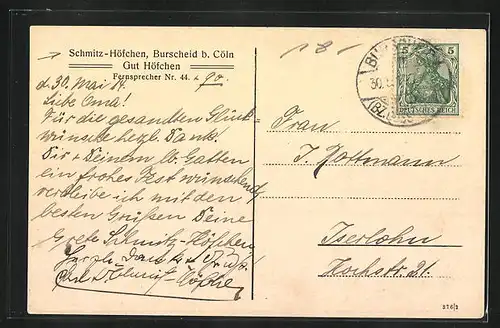 Schmitz-Höfchen, Burscheid b. Cöln
Gut Höfchen
Fernsprecher Nr. 44. + 90.
d. 30. Mai 14.
Liebe Oma!
Für die gesandten Glück-
wünsche herzl. Dank.
Dir + Deinem lb. Gatten
ein frohes Fest wünschend,
verbleibe ich mit den
besten Grüßen Deine
Grete Schmitz-Höfchen
Herzl. Dank + Gruß!
BURSCHEID
30.
5 5
DEUTSCHES REICH
Frau
J. Gottmann
Iserlohn
Hochstr. 21.